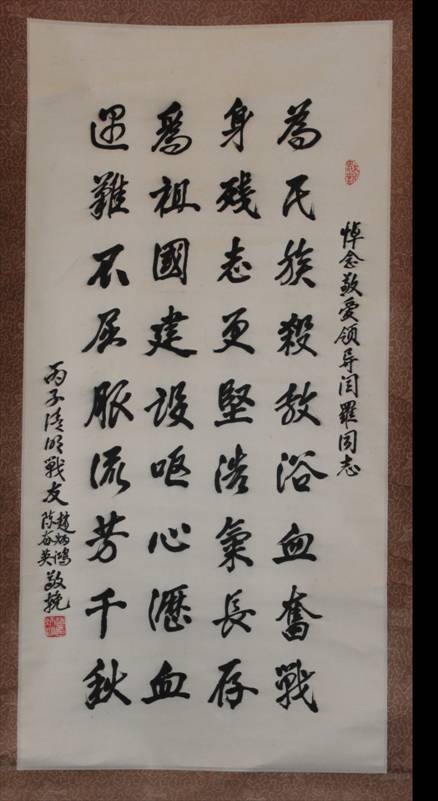 悼念敬爱领导闫罪同志
为民族殺敌浴血奮戰
身残志更堅浩氣長存
爲祖國建设呕心瀝血
遇難不屈服流芳千秋
丙子清明戰友
趙炳鴻
陈春英
敬挽